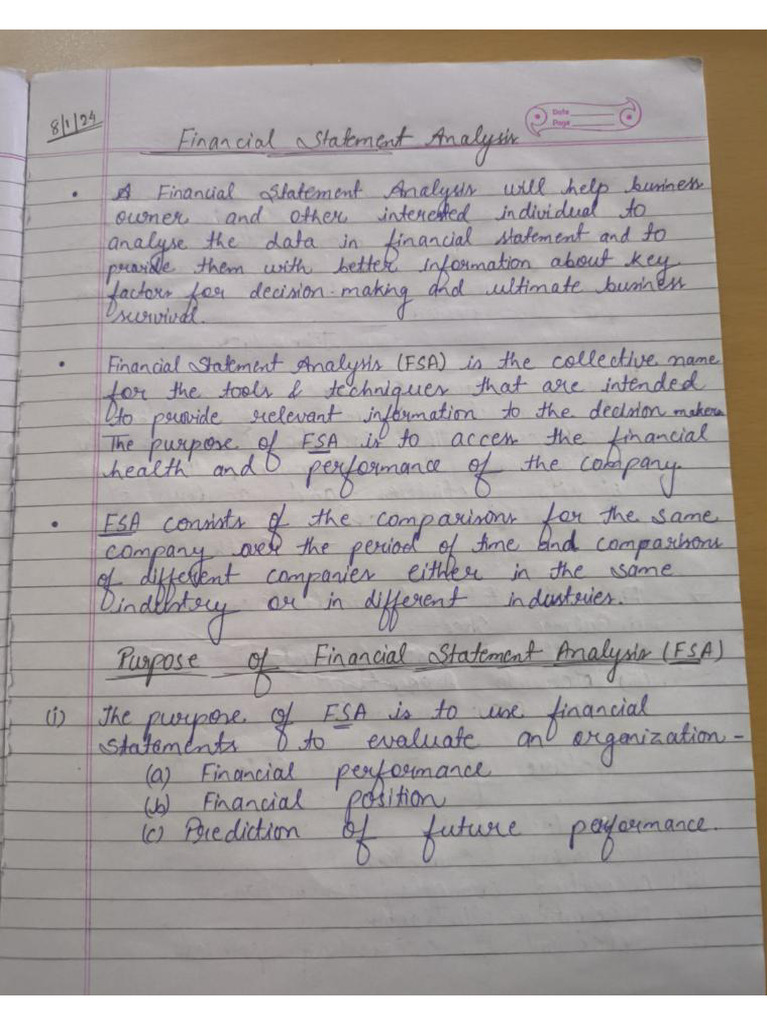 8/1/24
Date
Page
Financial Statement Analysis
• A Financial Statement Analysis will help business
owner and other interested individual to
analyse the data in financial statement and to
provide them with better information about key
factors for decision-making and ultimate business
survival.
• Financial Statement Analysis (FSA) is the collective name
for the tools & techniques that are intended
to provide relevant information to the decision makers.
The purpose of FSA is to access the financial
health and performance of the company.
• FSA consists of the comparisons for the same
company over the period of time and comparisons
of different companies either in the same
industry or in different industries.
Purpose of Financial Statement Analysis (FSA)
(i) The purpose of FSA is to use financial
statements to evaluate an organization -
(a) Financial performance
(b) Financial position
(c) Prediction of future performance.